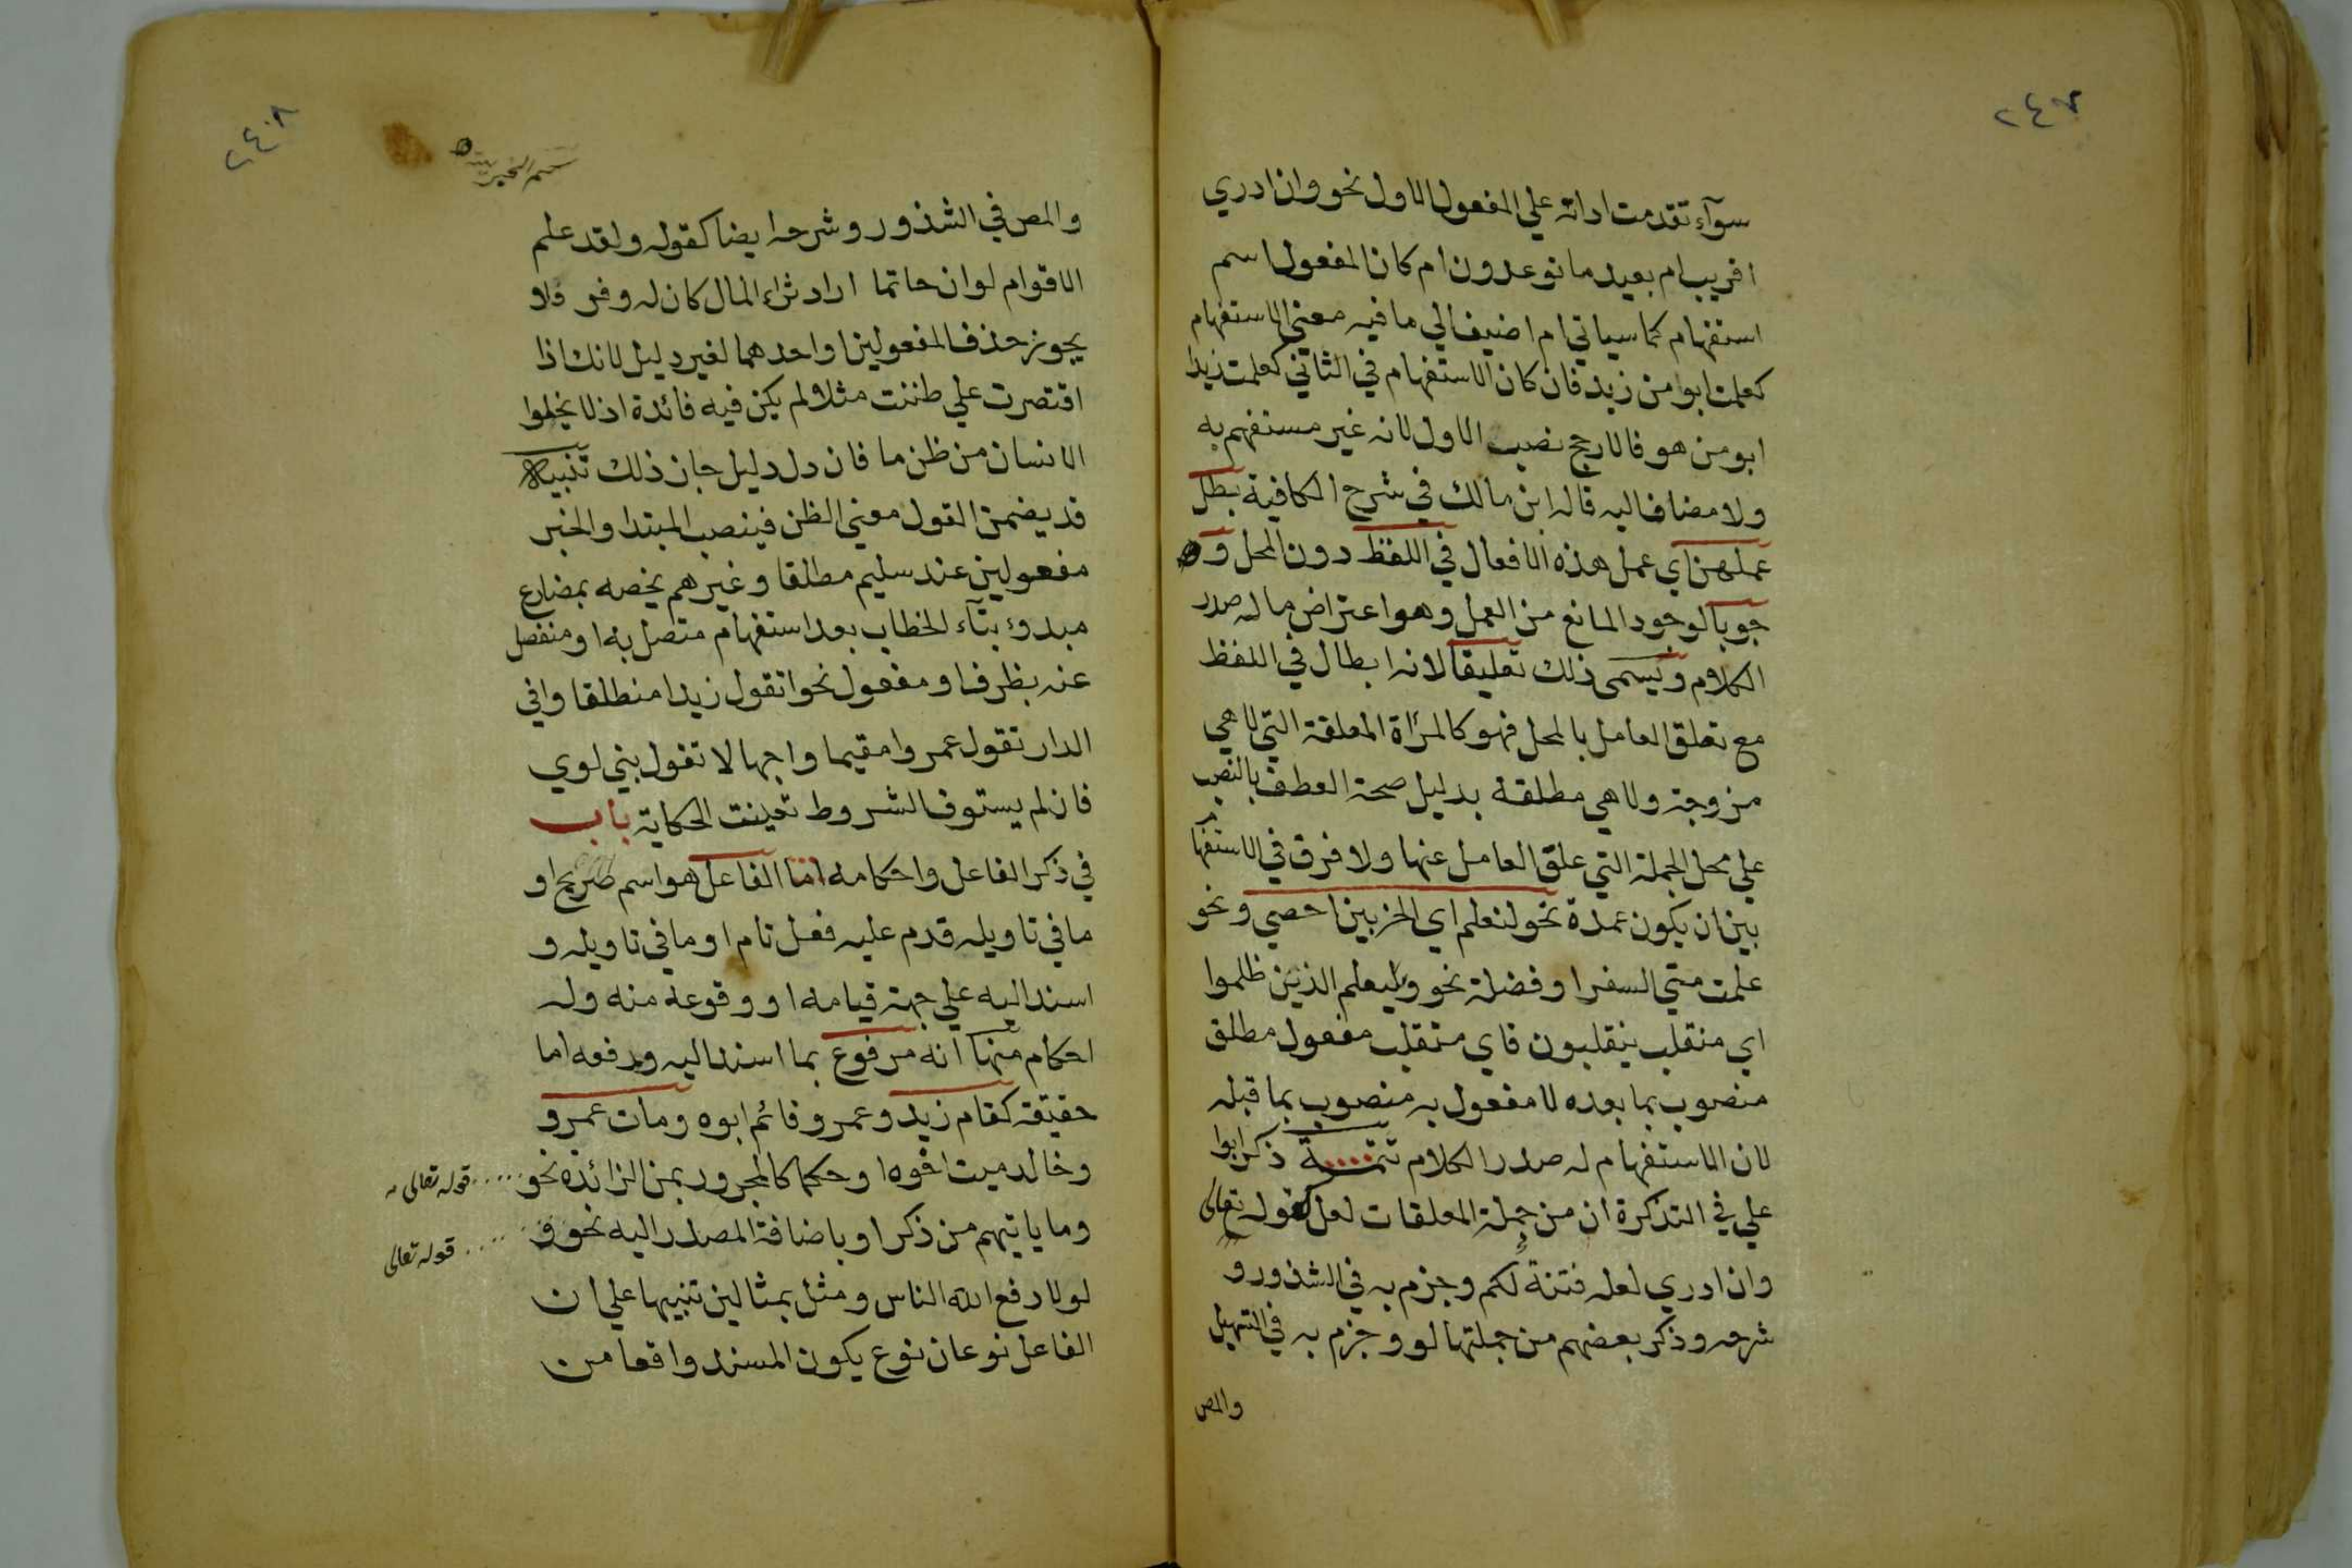 ٢٤٧
سوآء تقدمت اداته علي المفعول الاول نحو وان ادري
اقريب ام بعيد ما توعدون ام كان المفعول اسم
استفهام كما سياتي ام اضيف الي ما فيه معني الاستفهام
كعلمت ابو من زيد فان كان الاستفهام في الثاني كعلمت زيدا
ابو من هو فالارجح نصب الاول لانه غير مستفهم به
ولا مضاف اليه قاله ابن مالك في شرح الكافية بطل
عملهن اي عمل هذه الافعال في اللفظ دون المحل و
جوبا لوجود المانع من العمل وهو اعتراض ما له صدر
الكلام ويسمى ذلك تعليقا لانه ابطال في اللفظ
مع تعلق العامل بالمحل فهو كالمرأة المعلقة التي لا هي
مزوجة ولا هي مطلقة بدليل صحة العطف بالنصب
علي محل الجملة التي علق العامل عنها ولا فرق في الاستفها
م
بين ان يكون عمدة نحو لنعلم اي الحزبين احصي ونحو
علمت متي السفر او فضلة نحو وسيعلم الذين ظلموا
اي منقلب ينقلبون فاي منقلب مفعول مطلق
منصوب بما بعده لا مفعول به منصوب بما قبله
لان الاستفهام له صدر الكلام تتمة ذكر ابوا
علي في التذكرة ان من جملة المعلقات لعل كقوله تعالى
وان ادري لعله فتنة لكم وجزم به في الشذور و
شرحه وذكر بعضهم من جملتها لو وجزم به في التسهيل
والمص
٢٤٨
والمص في الشذور وشرحه ايضا كقوله ولقد علم
الاقوام لو ان حاتما اراد ثراء المال كان له وفر ولا
يجوز حذف المفعولين او احدهما لغير دليل لانك اذا
اقتصرت علي ظننت مثلا لم يكن فيه فائدة اذ لا يخلوا
الانسان من ظن ما فان دل دليل جاز ذلك تنبيه
قد يضمن القول معني الظن فينصب المبتدا والخبر
مفعولين عند سليم مطلقا وغيرهم يخصه بمضارع
مبدوء بتآء الخطاب بعد استفهام متصل به او منفصل
عنه بظرف او مفعول نحو اتقول زيدا منطلقا وافي
الدار تقول عمروا مقيما واجهالا تقول بني لوي
فان لم يستوف الشروط تعينت الحكاية باب
في ذكر الفاعل واحكامه اما الفاعل هو اسم صريح او
ما في تاويله قدم عليه فعل تام او ما في تاويله و
اسند اليه علي جهة قيامه او وقوعه منه وله
احكام منها انه مرفوع بما اسند اليه ورفعه اما
حقيقة كقام زيد وعمرو قائم ابوه ومات عمرو
وخالد ميت اخوه او حكما كالمجرور بمن الزائدة نحو
قوله تعالى
وما ياتيهم من ذكر او باضافة المصدر اليه نحو
قوله تعالى
لولا دفع الله الناس ومثل بمثالين تنبيها علي ان
الفاعل نوعان نوع يكون المسند واقعا من